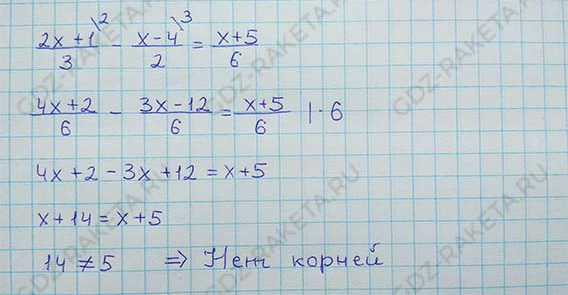 (2x+1)/3 \2 - (x-4)/2 \3 = (x+5)/6
(4x+2)/6 - (3x-12)/6 = (x+5)/6 | · 6
4x+2-3x+12 = x+5
x+14 = x+5
14 ≠ 5 => Нет корней
GDZ-RAKETA.RU